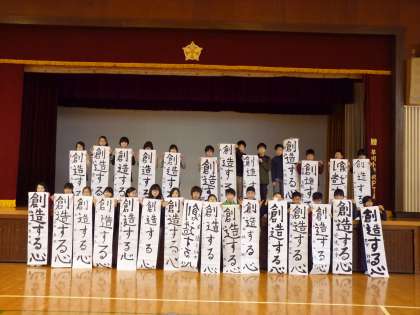 創造する心
創造する心
創造する心
創造する心
創造する心
創造する心
創造する心
創造する心
創造する心
創造する心
創造する心
創造する心
創造する心
創造する心
創造する心
創造する心
創造する心
創造する心
創造する心
創造する心
創造する心
創造する心
創造する心
贈